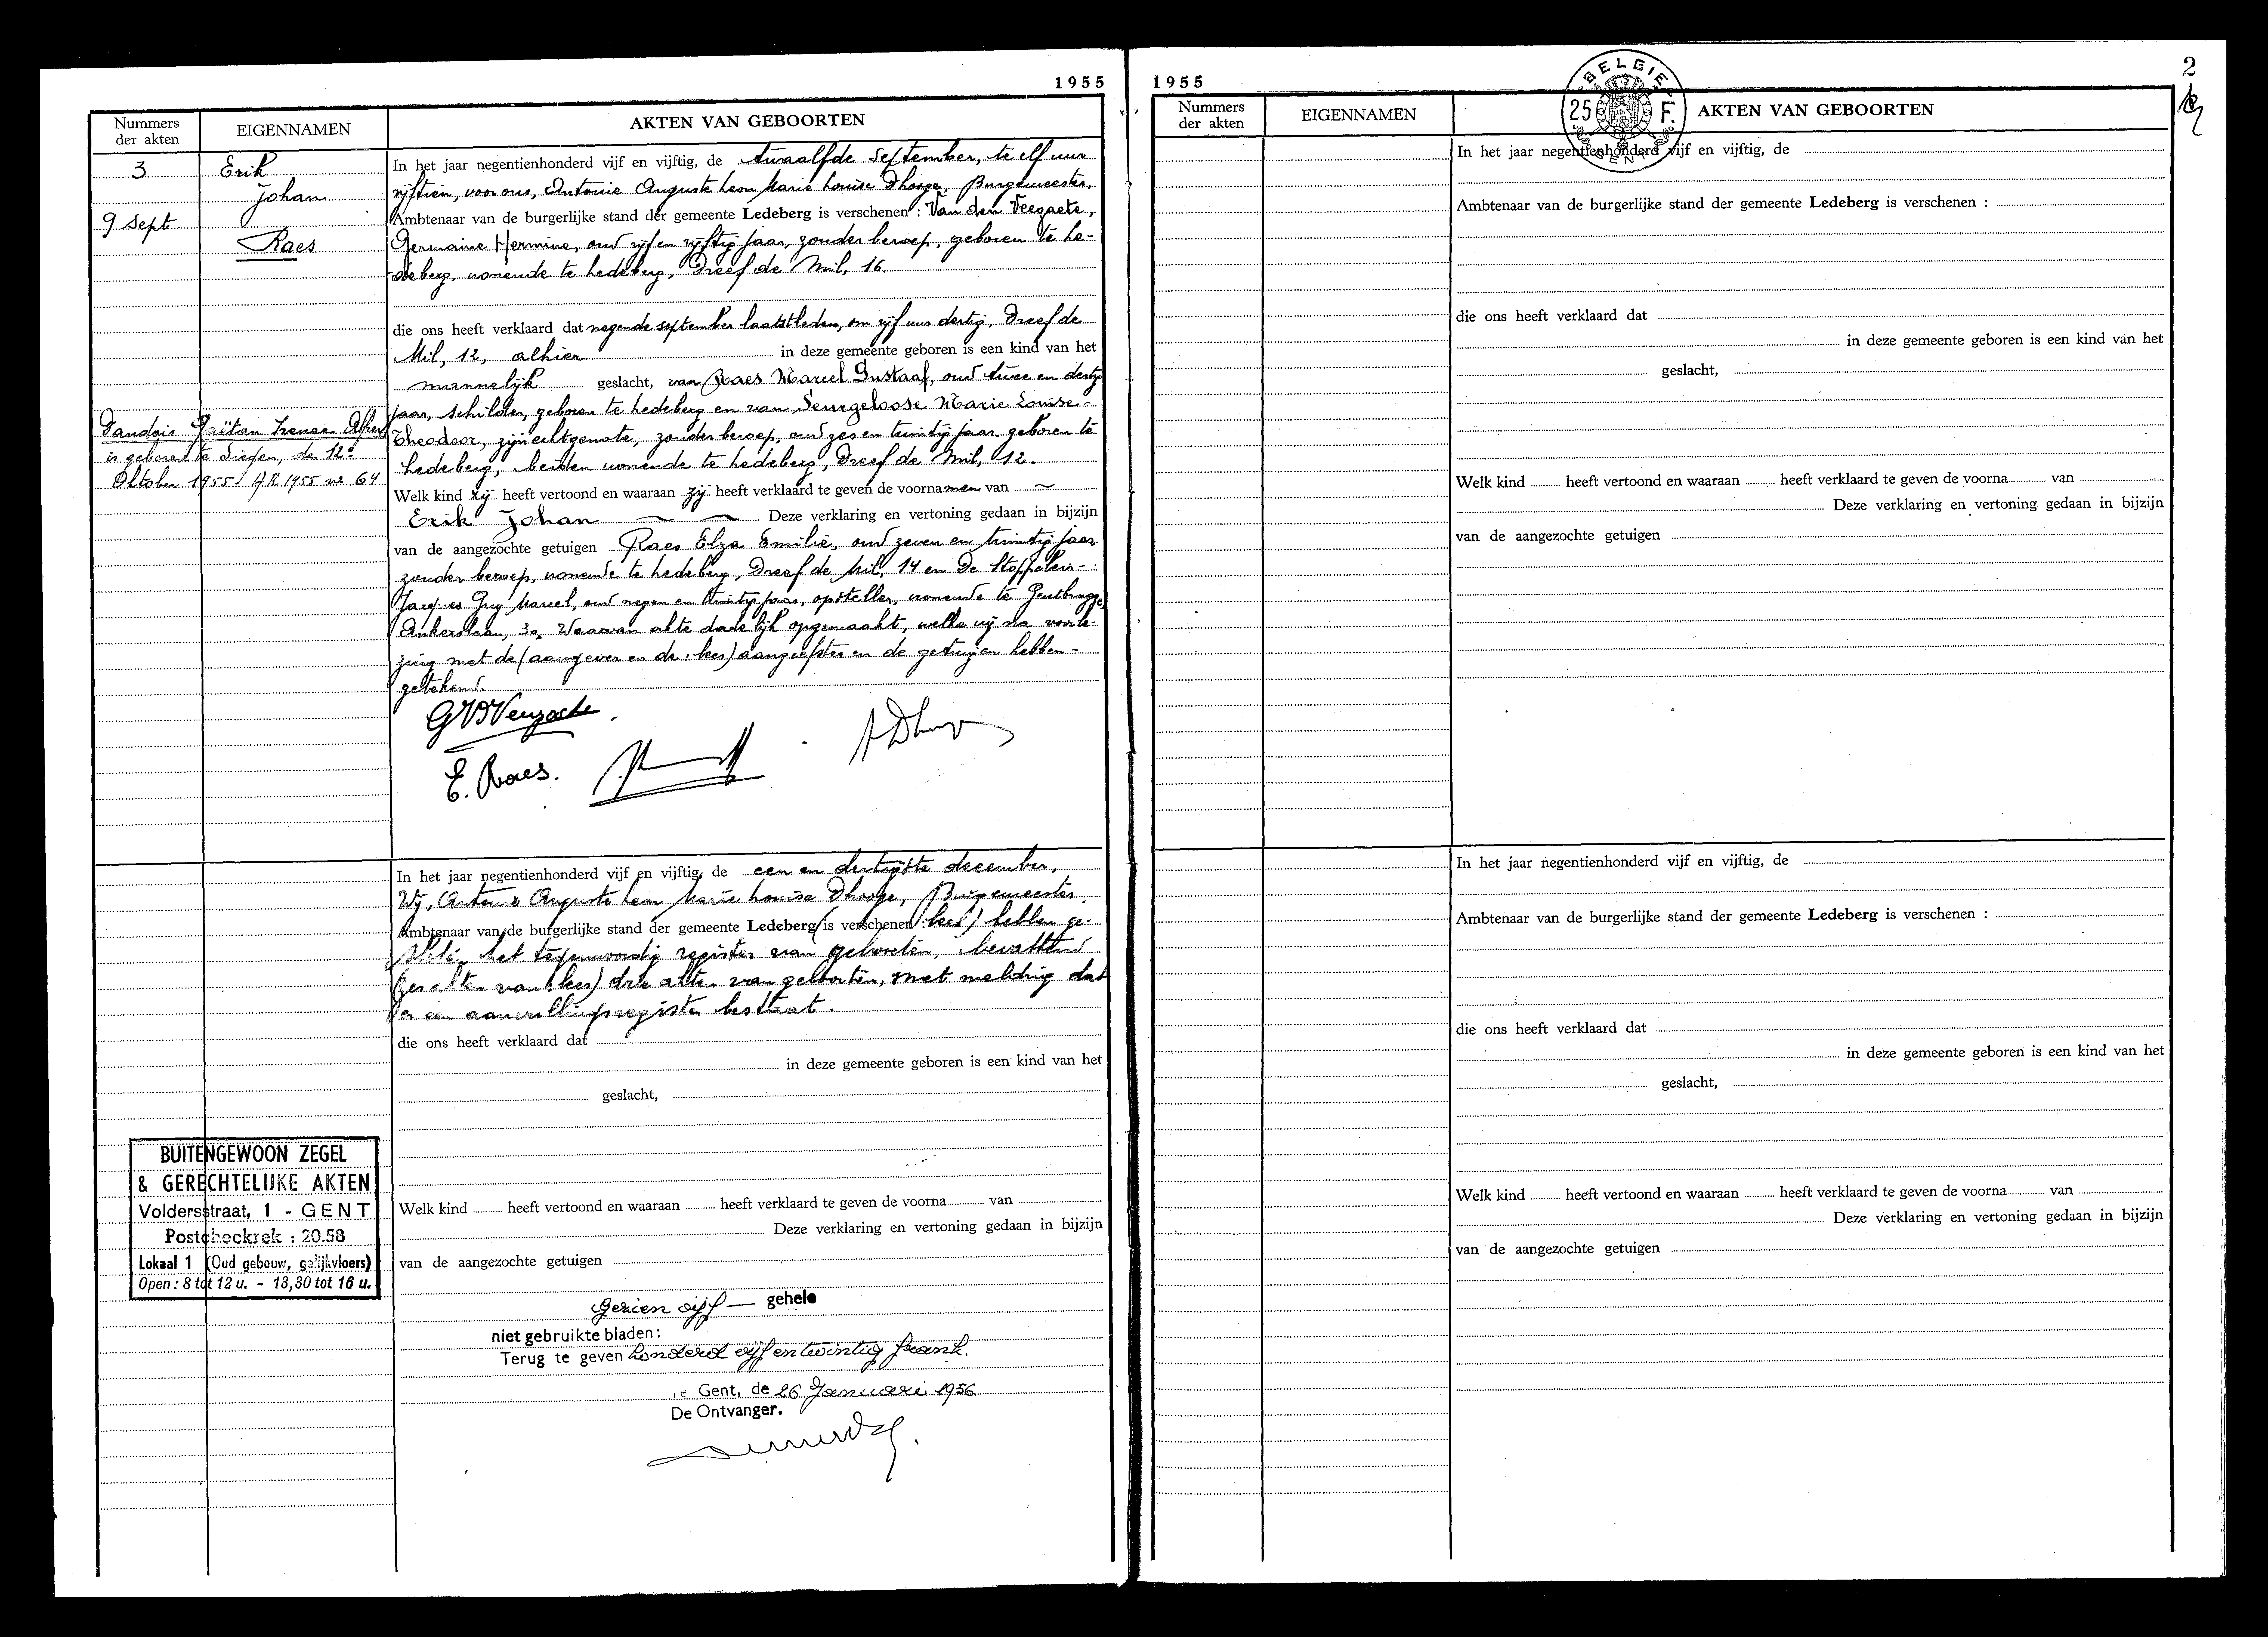 1955
Nummers der akten
EIGENNAMEN
AKTEN VAN GEBOORTEN
3
Erik
Johan
9 sept.
Raes
In het jaar negentienhonderd vijf en vijftig, de twaalfde september, te elf uur
vijftien, voor ons, Antonie Auguste Leon Marie Louise Dhooge, Burgemeester,
Ambtenaar van de burgerlijke stand der gemeente Ledeberg is verschenen : Van den Veegaete,
Germaine Hermine, oud vijf en vijftig jaar, zonder beroep, geboren te Le-
deberg, wonende te Ledeberg, Dreef de Mil, 16.
die ons heeft verklaard dat negende september laatstleden, om vijf uur dertig, Dreef de
Mil, 12, alhier in deze gemeente geboren is een kind van het
mannelijk geslacht, van Raes Marcel Gustaaf, oud twee en dertig
jaar, schilder, geboren te Ledeberg en van Seurgeloose Marie Louise
Theodoor, zijn echtgenote, zonder beroep, oud zes en twintig jaar, geboren te
Ledeberg, beiden wonende te Ledeberg, Dreef de Mil, 12.
Welk kind zij heeft vertoond en waaraan zij heeft verklaard te geven de voornamen van
Erik Johan Deze verklaring en vertoning gedaan in bijzijn
van de aangezochte getuigen Raes Elza Emilie, oud zeven en twintig jaar
zonder beroep, wonende te Ledeberg, Dreef de Mil, 14 en De Stoppeleir
Jacques Guy Marcel, oud negen en twintig jaar, opsteller, wonende te Gentbrugge,
Ankerslaan, 30, Waarvan akte dadelijk opgemaakt, welke wij na voorle-
zing met de (aangever en de : lees) aangeefster en de getuigen hebben
getekend.
Dandois Gaëtan Irenee Albert
is geboren te Siegen, de 12e
Oktober 1955 / AR 1955 nr 64
E. Raes.
In het jaar negentienhonderd vijf en vijftig, de een en dertigste december,
Wij, Antonie Auguste Leon Marie Louise Dhooge, Burgemeester
Ambtenaar van de burgerlijke stand der gemeente Ledeberg (is verschenen : lees) hebben ge-
sloten het tegenwoordig register van geboorten, bevattend
(zes akten van : lees) drie akten van geboorten, met melding dat
er een aanvullingsregister bestaat.
die ons heeft verklaard dat
in deze gemeente geboren is een kind van het
geslacht,
Welk kind heeft vertoond en waaraan heeft verklaard te geven de voorna van
Deze verklaring en vertoning gedaan in bijzijn
van de aangezochte getuigen
BUITENGEWOON ZEGEL
& GERECHTELIJKE AKTEN
Voldersstraat, 1 - GENT
Postcheckrek : 20.58
Lokaal 1 (Oud gebouw, gelijkvloers)
Open : 8 tot 12 u. - 13,30 tot 16 u.
Gezien vijf — gehele
niet gebruikte bladen :
Terug te geven honderd vijf en twintig frank.
Gent, de 26 Januari 1956
De Ontvanger.
1955
2
BELGIE
25 F.
Nummers der akten
EIGENNAMEN
AKTEN VAN GEBOORTEN
In het jaar negentienhonderd vijf en vijftig, de
Ambtenaar van de burgerlijke stand der gemeente Ledeberg is verschenen :
die ons heeft verklaard dat
in deze gemeente geboren is een kind van het
geslacht,
Welk kind heeft vertoond en waaraan heeft verklaard te geven de voorna van
Deze verklaring en vertoning gedaan in bijzijn
van de aangezochte getuigen
In het jaar negentienhonderd vijf en vijftig, de
Ambtenaar van de burgerlijke stand der gemeente Ledeberg is verschenen :
die ons heeft verklaard dat
in deze gemeente geboren is een kind van het
geslacht,
Welk kind heeft vertoond en waaraan heeft verklaard te geven de voorna van
Deze verklaring en vertoning gedaan in bijzijn
van de aangezochte getuigen